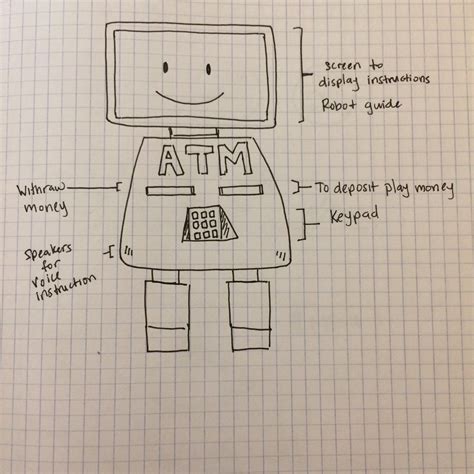 screen to
display instructions
Robot guide
ATM
withraw
money
To deposit play money
Keypad
speakers
for
voice
instruction